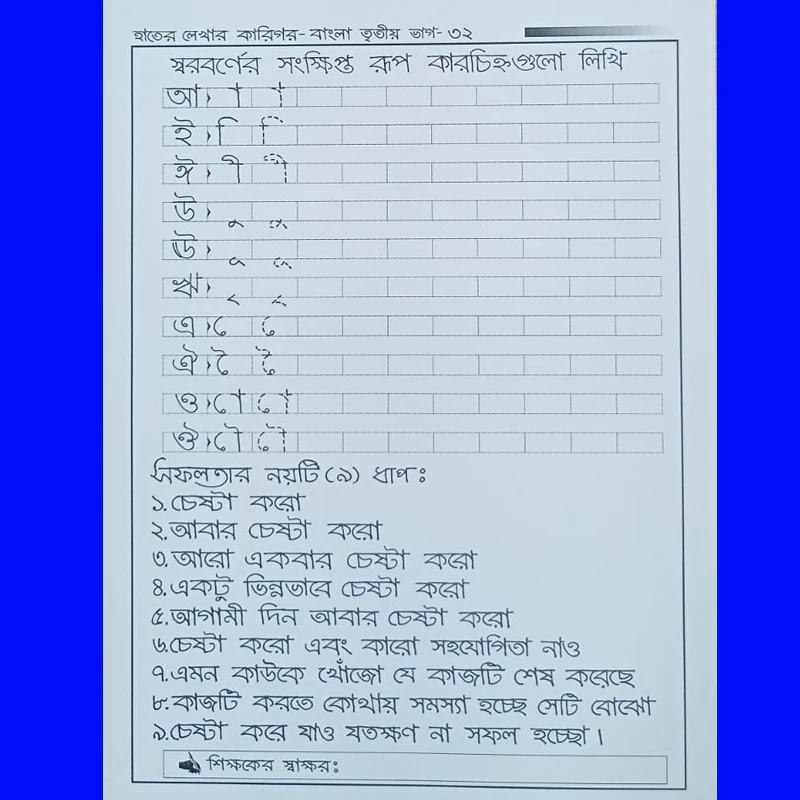 হাতের লেখার কারিগর- বাংলা তৃতীয় ভাগ- ৩২
স্বরবর্ণের সংক্ষিপ্ত রূপ কারচিহ্নগুলো লিখি
আ › া া
ই › ি ি
ঈ › ী ী
উ › ু ু
ঊ › ূ ূ
ঋ › ৃ ৃ
এ › ে ে
ঐ › ৈ ৈ
ও › ো ো
ঔ › ৌ ৌ
সফলতার নয়টি (৯) ধাপঃ
১. চেষ্টা করো
২. আবার চেষ্টা করো
৩. আরো একবার চেষ্টা করো
৪. একটু ভিন্নভাবে চেষ্টা করো
৫. আগামী দিন আবার চেষ্টা করো
৬. চেষ্টা করো এবং কারো সহযোগিতা নাও
৭. এমন কাউকে খোঁজো যে কাজটি শেষ করেছে
৮. কাজটি করতে কোথায় সমস্যা হচ্ছে সেটি বোঝো
৯. চেষ্টা করে যাও যতক্ষণ না সফল হচ্ছো।
শিক্ষকের স্বাক্ষরঃ